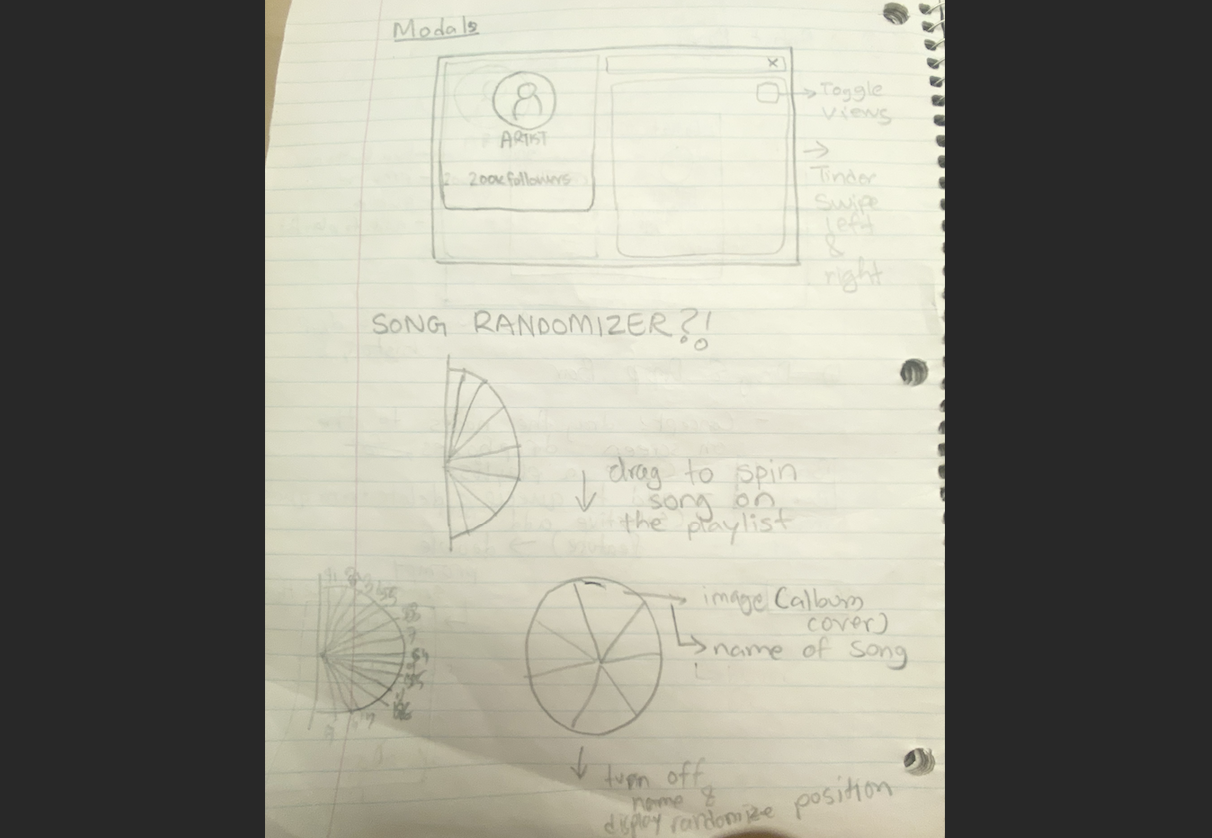 Modals
X
Toggle
views
ARTIST
200k followers
→
Tinder
Swipe
left
&
right
SONG RANDOMIZER?!
drag to spin
song on
the playlist
image (album
cover)
name of song
turn off
name &
display randomize position